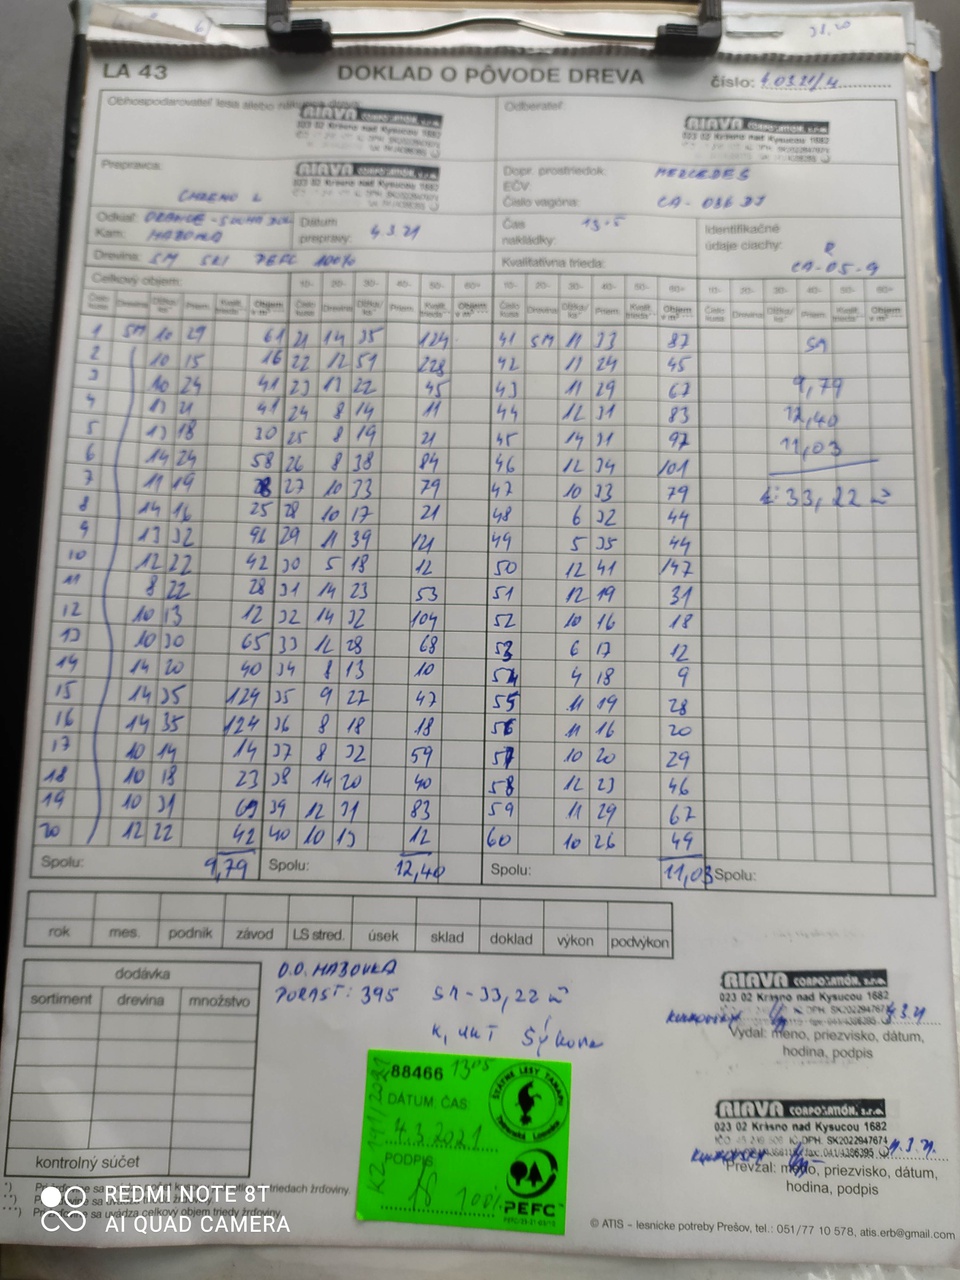 LA 43 DOKLAD O PÔVODE DREVA číslo: 4.0321/4
Obhospodarovateľ lesa alebo Odberateľ:
RIAVA CORPORATION, s.r.o. RIAVA CORPORATION, s.r.o.
023 02 Krásno nad Kysucou 1682 023 02 Krásno nad Kysucou 1682
Prepravca: RIAVA CORPORATION, s.r.o. Dopr. prostriedok: MERCEDES
023 02 Krásno nad Kysucou 1682 EČV:
Číslo vagóna: CA-036 DJ
Odkiaľ: ORANCE - SUCHA DOL Dátum Čas 13.5 Identifikačné
Kam: prepravy: 4.3.21 nakládky: údaje ciachy: R
Drevina: SM SKI PEFC 100% Kvalitatívna trieda: CA-05-9
Celkový objem: 10- 20- 30- 40- 50- 60+ 10- 20- 30- 40- 50- 60+ 10- 20- 30- 40- 50- 60+
1 SM 10 29 61 21 14 35 124 41 SM 11 33 87 SM
2 10 15 16 22 12 51 228 42 11 24 45
3 10 24 41 23 11 22 45 43 11 29 67 9,79
4 11 21 41 24 8 14 11 44 12 31 83 12,40
5 13 18 30 25 8 19 21 45 14 31 97 11,03
6 14 24 58 26 8 38 84 46 12 34 101
7 11 19 28 27 10 33 79 47 10 33 79 33,22 m³
8 14 16 25 28 10 17 21 48 6 32 44
9 13 32 96 29 11 39 121 49 5 35 44
10 12 22 42 30 5 18 12 50 12 41 147
11 8 22 28 31 14 23 53 51 12 19 31
12 10 13 12 32 14 32 104 52 10 16 18
13 10 30 65 33 12 28 68 53 6 17 12
14 14 20 40 34 8 13 10 54 4 18 9
15 14 35 124 35 9 27 47 55 11 19 28
16 14 35 124 36 8 18 18 56 11 16 20
17 10 14 14 37 8 32 59 57 10 20 29
18 10 18 23 38 14 20 40 58 12 23 46
19 10 31 69 39 12 31 83 59 11 29 67
20 12 22 42 40 10 13 12 60 10 26 49
Spolu: 9,79 Spolu: 12,40 Spolu: 11,03 Spolu:
rok mes. podnik závod LS stred. úsek sklad doklad výkon podvýkon
dodávka
sortiment drevina množstvo
kontrolný súčet
O.O. HABOVKA
PORAST: 395 SM-33,22 m³
88466 13⁰⁵
DÁTUM, ČAS:
4.3.2021
PODPIS
100%
ŠTÁTNE LESY TANAPU
PEFC
RIAVA CORPORATION, s.r.o.
023 02 Krásno nad Kysucou 1682
4.3.21
Vydal: meno, priezvisko, dátum,
hodina, podpis
RIAVA CORPORATION, s.r.o.
023 02 Krásno nad Kysucou 1682
IČ DPH: SK2022947674
4.3.21
Prevzal: meno, priezvisko, dátum,
hodina, podpis
© ATIS – lesnícke potreby Prešov, tel.: 051/77 10 578, atis.erb@gmail.com
REDMI NOTE 8T
AI QUAD CAMERA